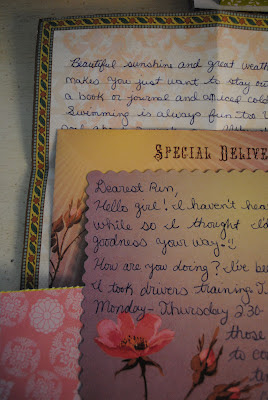 Beautiful sunshine and great weath
makes you just want to stay out
a book or journal and an iced cold
Swimming is always fun too
SPECIAL DELIVE
Dearest Run,
Hello girl! I haven't hea
while so I thought I'd
goodness your way!
How are you doing? I've be
I took drivers training
Monday-Thursday 2:30-
those
to co